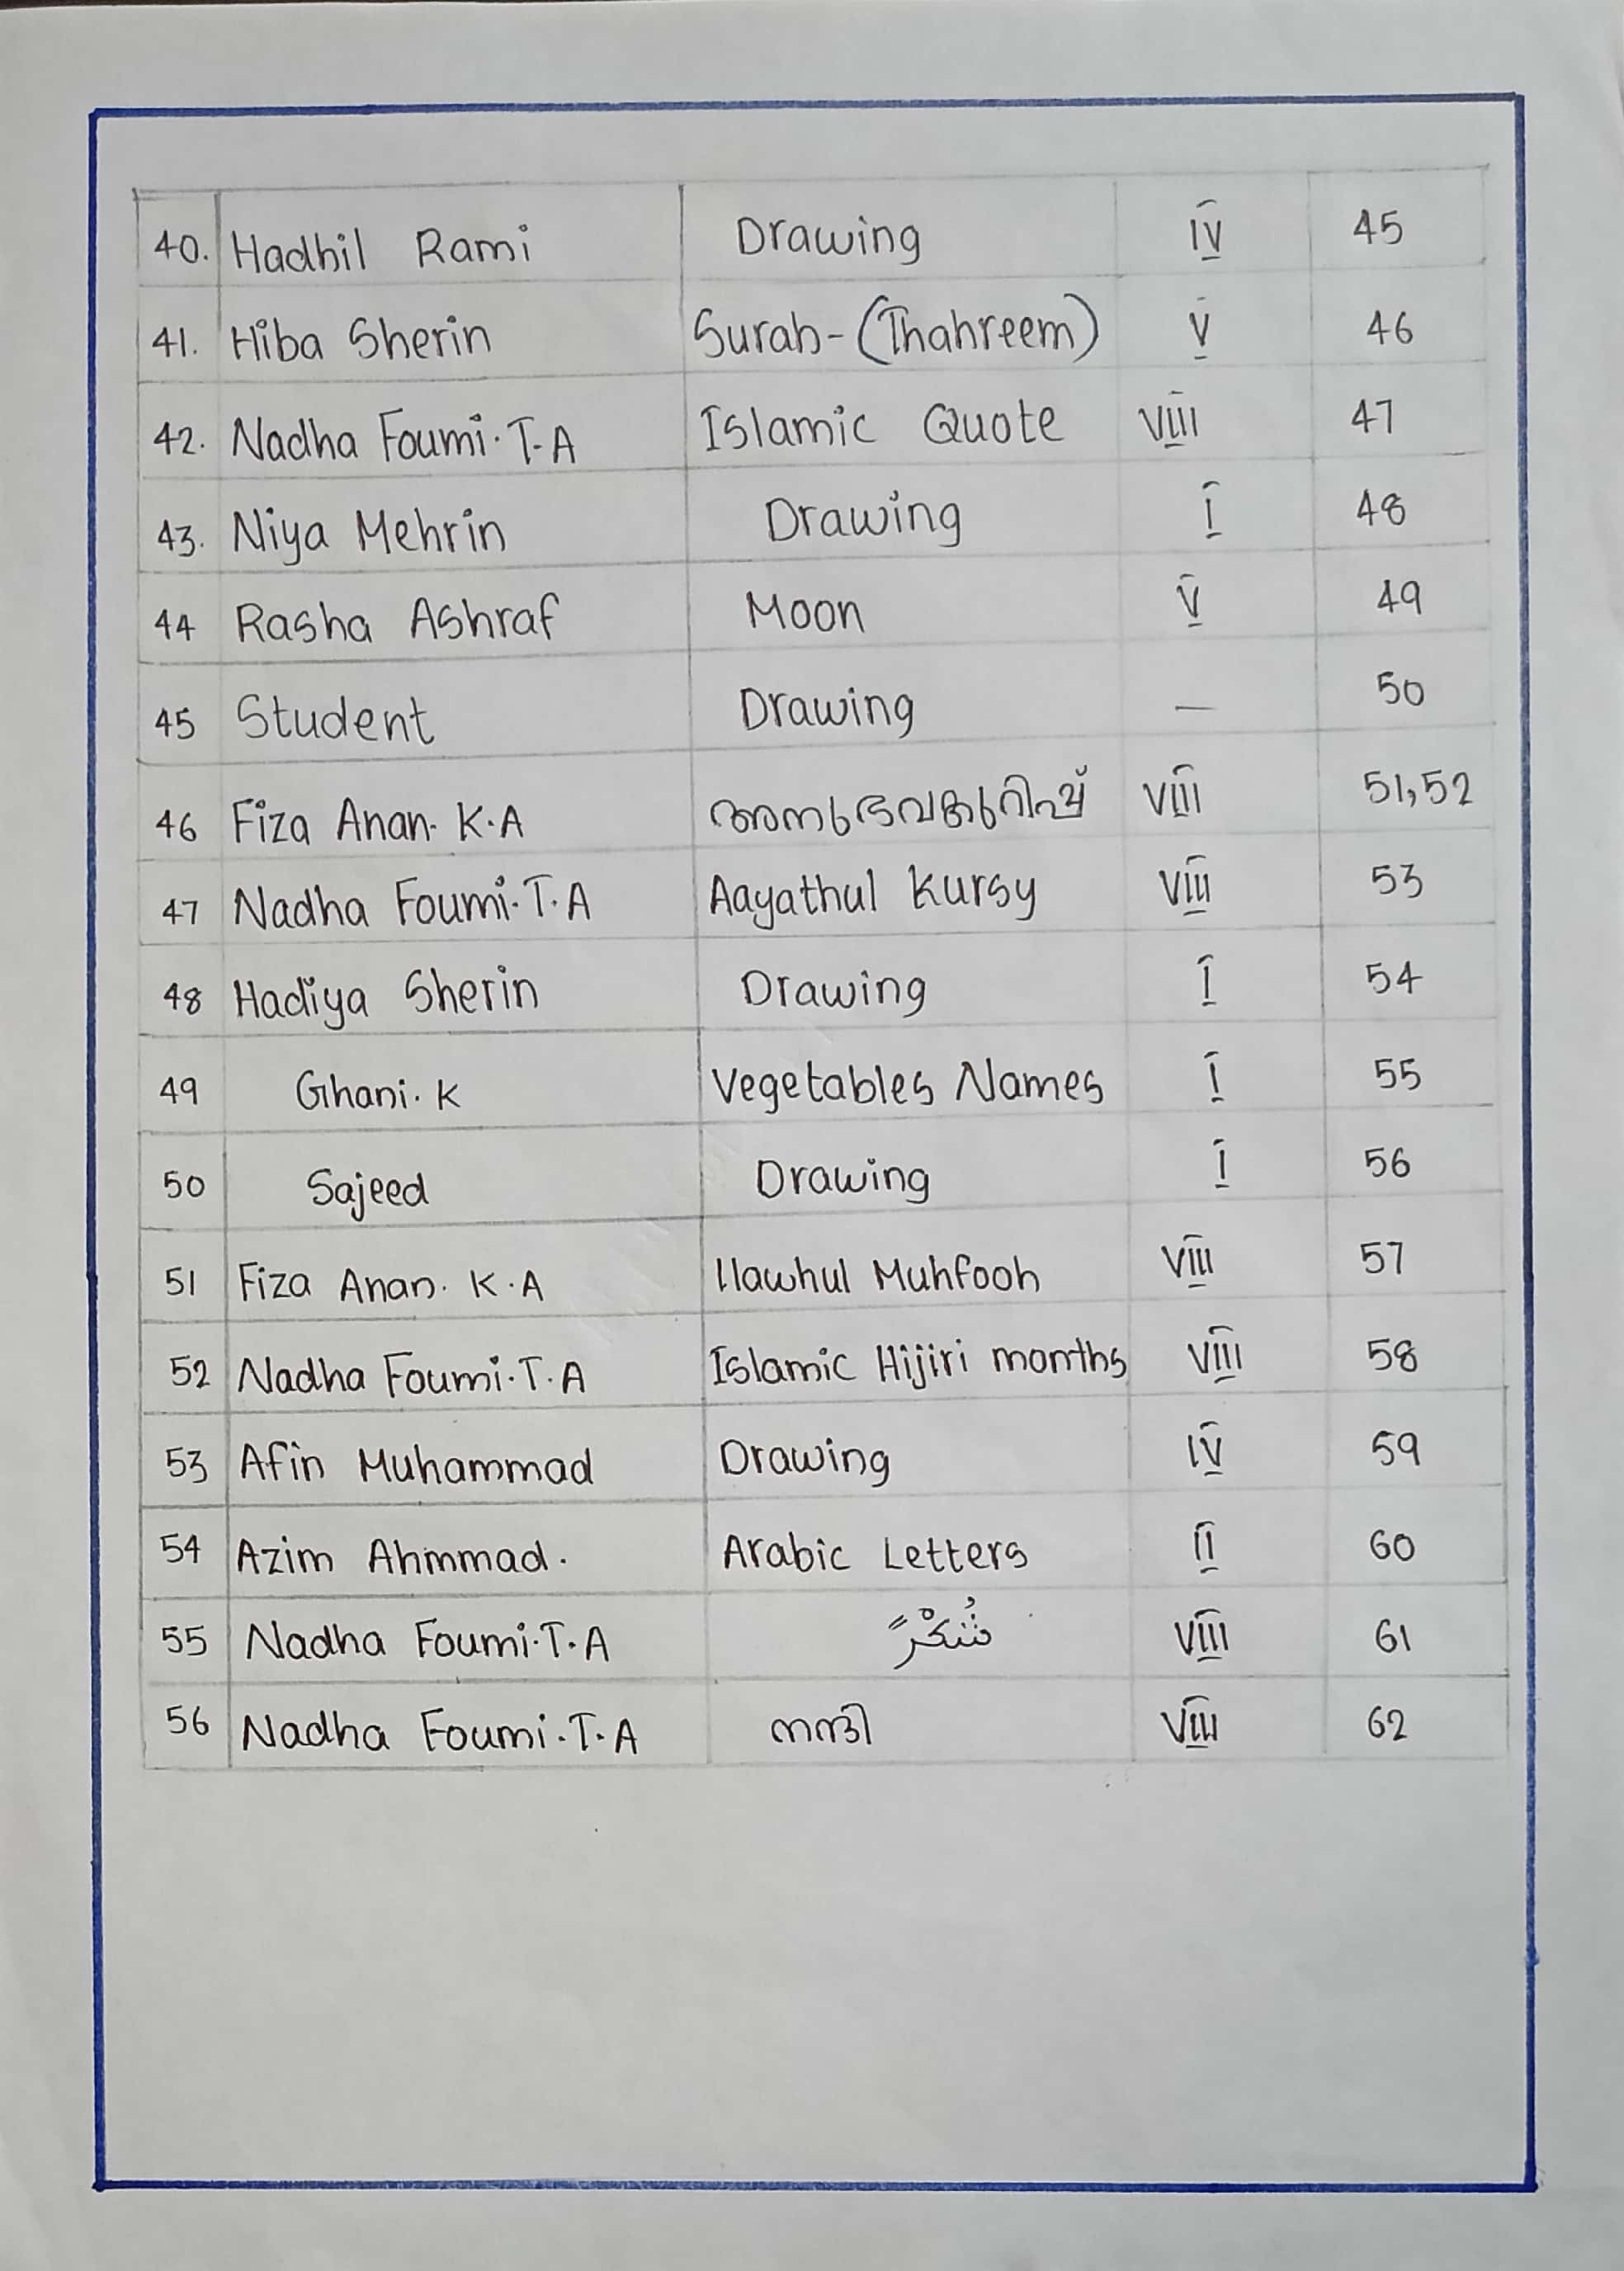 40. Hadhil Rami Drawing IV 45
41. Hiba Sherin Surah-(Thahreem) V 46
42. Nadha Foumi.T-A Islamic Quote VIII 47
43. Niya Mehrin Drawing I 48
44 Rasha Ashraf Moon V 49
45 Student Drawing — 50
46 Fiza Anan. K.A അനുഭവക്കുറിപ്പ് VIII 51,52
47 Nadha Foumi.T.A Aayathul Kursy VIII 53
48 Hadiya Sherin Drawing I 54
49 Ghani.K Vegetables Names I 55
50 Sajeed Drawing I 56
51 Fiza Anan. K.A llawhul Muhfooh VIII 57
52 Nadha Foumi.T.A Islamic Hijiri months VIII 58
53 Afin Muhammad Drawing IV 59
54 Azim Ahmmad. Arabic Letters II 60
55 Nadha Foumi.T.A شُكْرً VIII 61
56 Nadha Foumi.T.A നന്ദി VIII 62